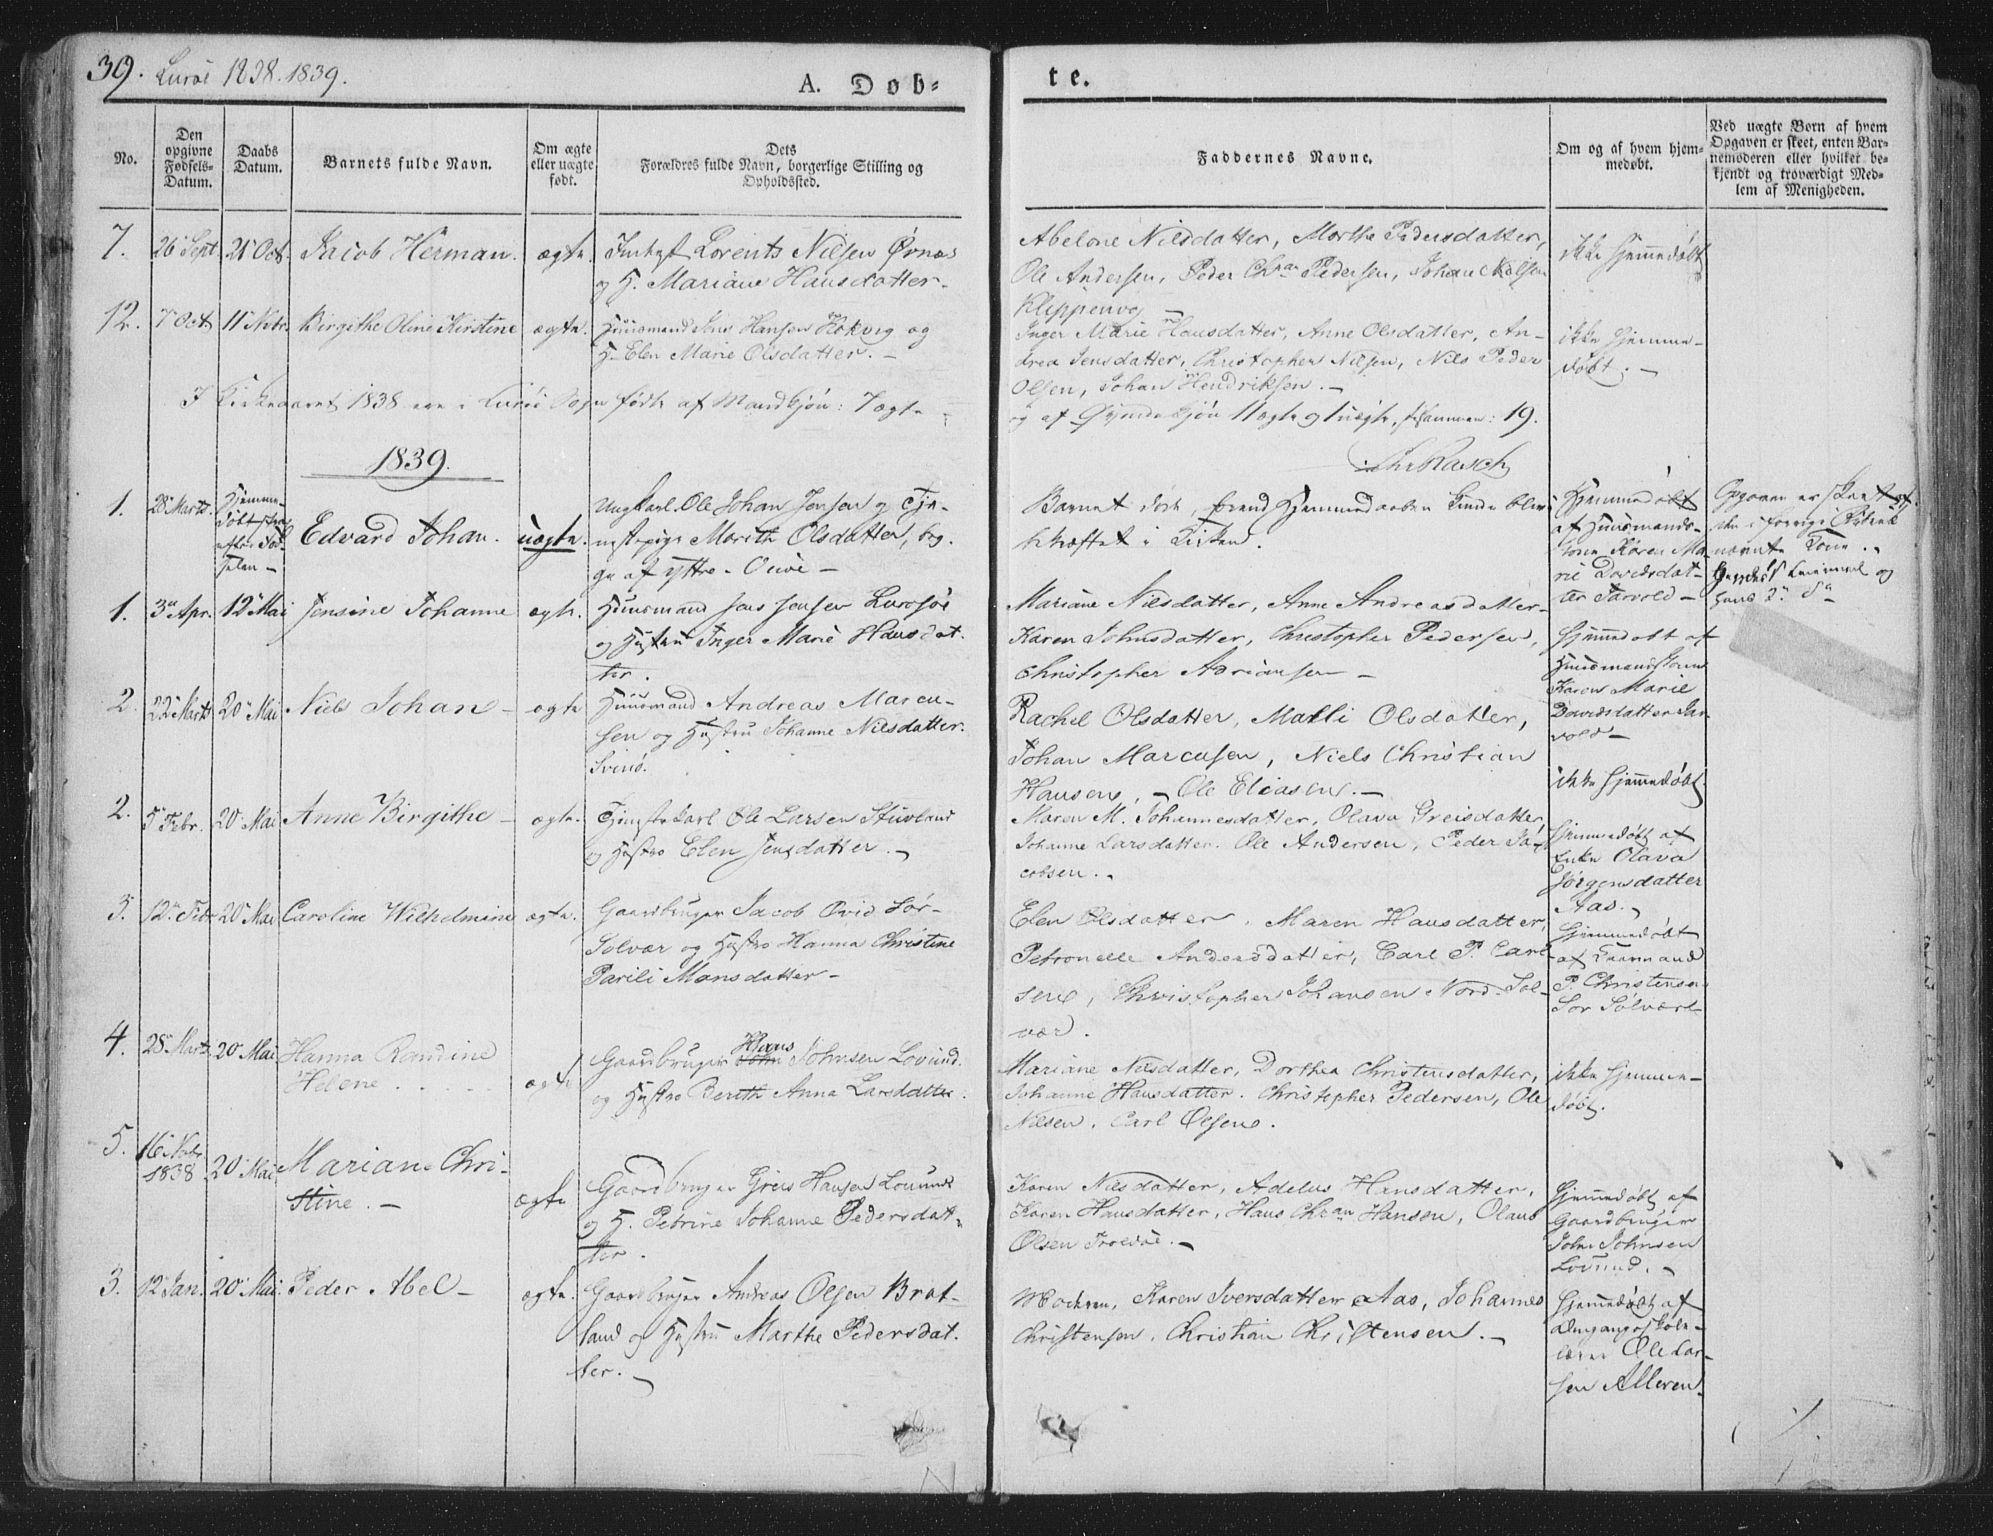 39. Lurøe 1838. 1839.
A. Døb-
te.
No.
Den opgivne Fødsels-Datum.
Daabs Datum.
Barnets fulde Navn.
Om ægte eller uægte født.
Dets Forældres fulde Navn, borgerlige Stilling og Opholdssted.
Faddernes Navne.
Om og af hvem hjemmedøbt.
Ved uægte Børn af hvem Opgaven er skeet, enten Barnemoderen eller hvilket bekjendt og troværdigt Medlem af Menigheden.
7. 26 Sept 21 Oct. Jacob Herman. ægte. Lorents Nilsen Øvnæs
og H. Mariane Hansdatter.
Abelone Nilsdatter, Marthe Pedersdatter,
Ole Andersen, Peder Chr an Pedersen, Johan Nilsen
Klippenvog
ikke hjemmedøbt
12. 7 Oct 11 Nvbr. Birgithe Oline Kirstine ægte. Huusmand Jens Hansen Hokvig og
H. Elen Marie Olsdatter. –
Inger Marie Hansdatter, Anne Olsdatter, An-
drea Jensdatter, Christopher Nilsen, Nils Peder
Olsen, Johan Hendriksen. –
ikke hjemme-
døbt. –
I Kirkeaaret 1838 ere i Lurøe Sogn fødte af Mandkjøn: 7 ægte
og af Qvindekjøn 11 ægte og 1 uægte, tilsammen: 19.
1839.
1. 28 Marts. Hjemme-
døbt
Edvard Johan. uægte. Ungkarl Ole Johan Jensen og Tje-
nestepige Marith Olsdatter, beg-
ge af Yttre-
Barnet døde, forend Hjemmedaaben kunde blive
bekræftet i Kirken.
Hjemmedøbt
af Huusmands-
kone Karen Ma-
rie Davidsdat-
ter Sarvold –
Opgaven er skeet af
den i forrige Rubrik
nævnte Kone.
1. 3 Apr. 12 Mai Jensine Johanne ægte. Huusmand Jens Jensen Lurøe
og Hustru Inger Marie Hansdat-
ter.
Mariane Nilsdatter, Anne Andreasdatter
Karen Johnsdatter, Christopher Pedersen,
Christopher Adriansen –
Hjemmedøbt af
Huusmandskone
Karen Marie
Davidsdatter Sar-
vold –
2. 22 Marts 20 Mai Niels Johan – ægte Huusmand Andreas Marcu-
sen og Hustru Johanne Nilsdatter.
Svinø.
Rachel Olsdatter, Malli Olsdatter,
Johan Marcusen, Niels Christian
Hansen, – Ole Eliasen. –
ikke hjemmedøbt
2. 5 Febr. 20 Mai Anne Birgithe – ægte. Tjenestekarl Ole Larsen Stuvland
og Hustro Elen Jensdatter. –
Maren M. Johannesdatter, Olava Greisdatter,
Johanne Larsdatter. Ole Andersen, Peder Ja-
cobsen.
Hjemmedøbt af
Enke Olava
Jørgensdatter
Aas. –
3. 12 Febr 20 Mai Caroline Wilhelmine ægte. Gaardbruger Jacob Ovid Sør-
Solvær og Hustro Hanna Christine
Parili Monsdatter –
Elen Olsdatter, Maren Hansdatter,
Petronelle Andersdatter, Carl P. Carl-
sen, Christopher Johansen Nord-Sol-
vær.
Hjemmedøbt
af
P. Christensen
Sør Solvær
4. 28 Marts 20 Mai Hanna Randine
Helene . . . ægte Gaardbruger Hans Johnsen Lovund.
og Hustro Berith Anna Larsdatter.
Mariane Nilsdatter, Dorthea Christensdatter,
Johanne Hansdatter. Christopher Pedersen, Ole
Nilsen, Carl Olsen.
ikke hjemme-
døbt.
5. 16 Nvbr
1838 20 Mai Mariane Chri-
stine. – ægte Gaardbruger Greis Hansen Lovund
og H. Petrine Johanne Pedersdat-
ter.
Karen Nilsdatter, Adelus Hansdatter,
Karen Hansdatter, Hans Chr an Hansen, Olaus
Olsen –
Hjemmedøbt af
Gaardbruger
John Johnsen
Lovund. –
3. 12 Jan. 20 Mai Peder Abel – ægte. Gaardbruger Andreas Olsen Brat-
land og Hustru Marthe Pedersdat-
ter. –
Moderen, Karen Iversdatter Aas, Johannes
Christensen, Christian Christensen. –
Hjemmedøbt af
Omgangsskole-
lærer Ole Lar-
sen Alleren.